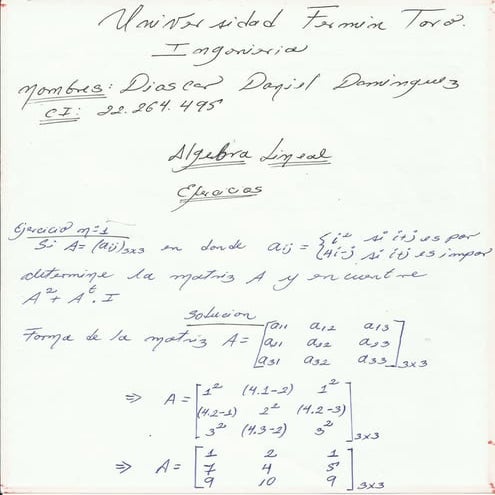 Universidad Fermin Toro.
Ingenieria
Nombres: Dioscar Daniel Dominguez
CI: 22.264.495
Algebra Lineal
Ejercicios
Ejercicio nº=1
Si A= (aij)3x3 en donde aij = {i² si i+j es par
{4i-j si i+j es impar
determine la matriz A y encuentre
A² + Aᵗ. I
Solucion
Forma de la matriz A= [a11 a12 a13
a21 a22 a23
a31 a32 a33]3x3
⇒ A= [1² (4.1-2) 1²
(4.2-1) 2² (4.2-3)
3² (4.3-2) 3²]3x3
⇒ A= [1 2 1
7 4 5
9 10 9]3x3